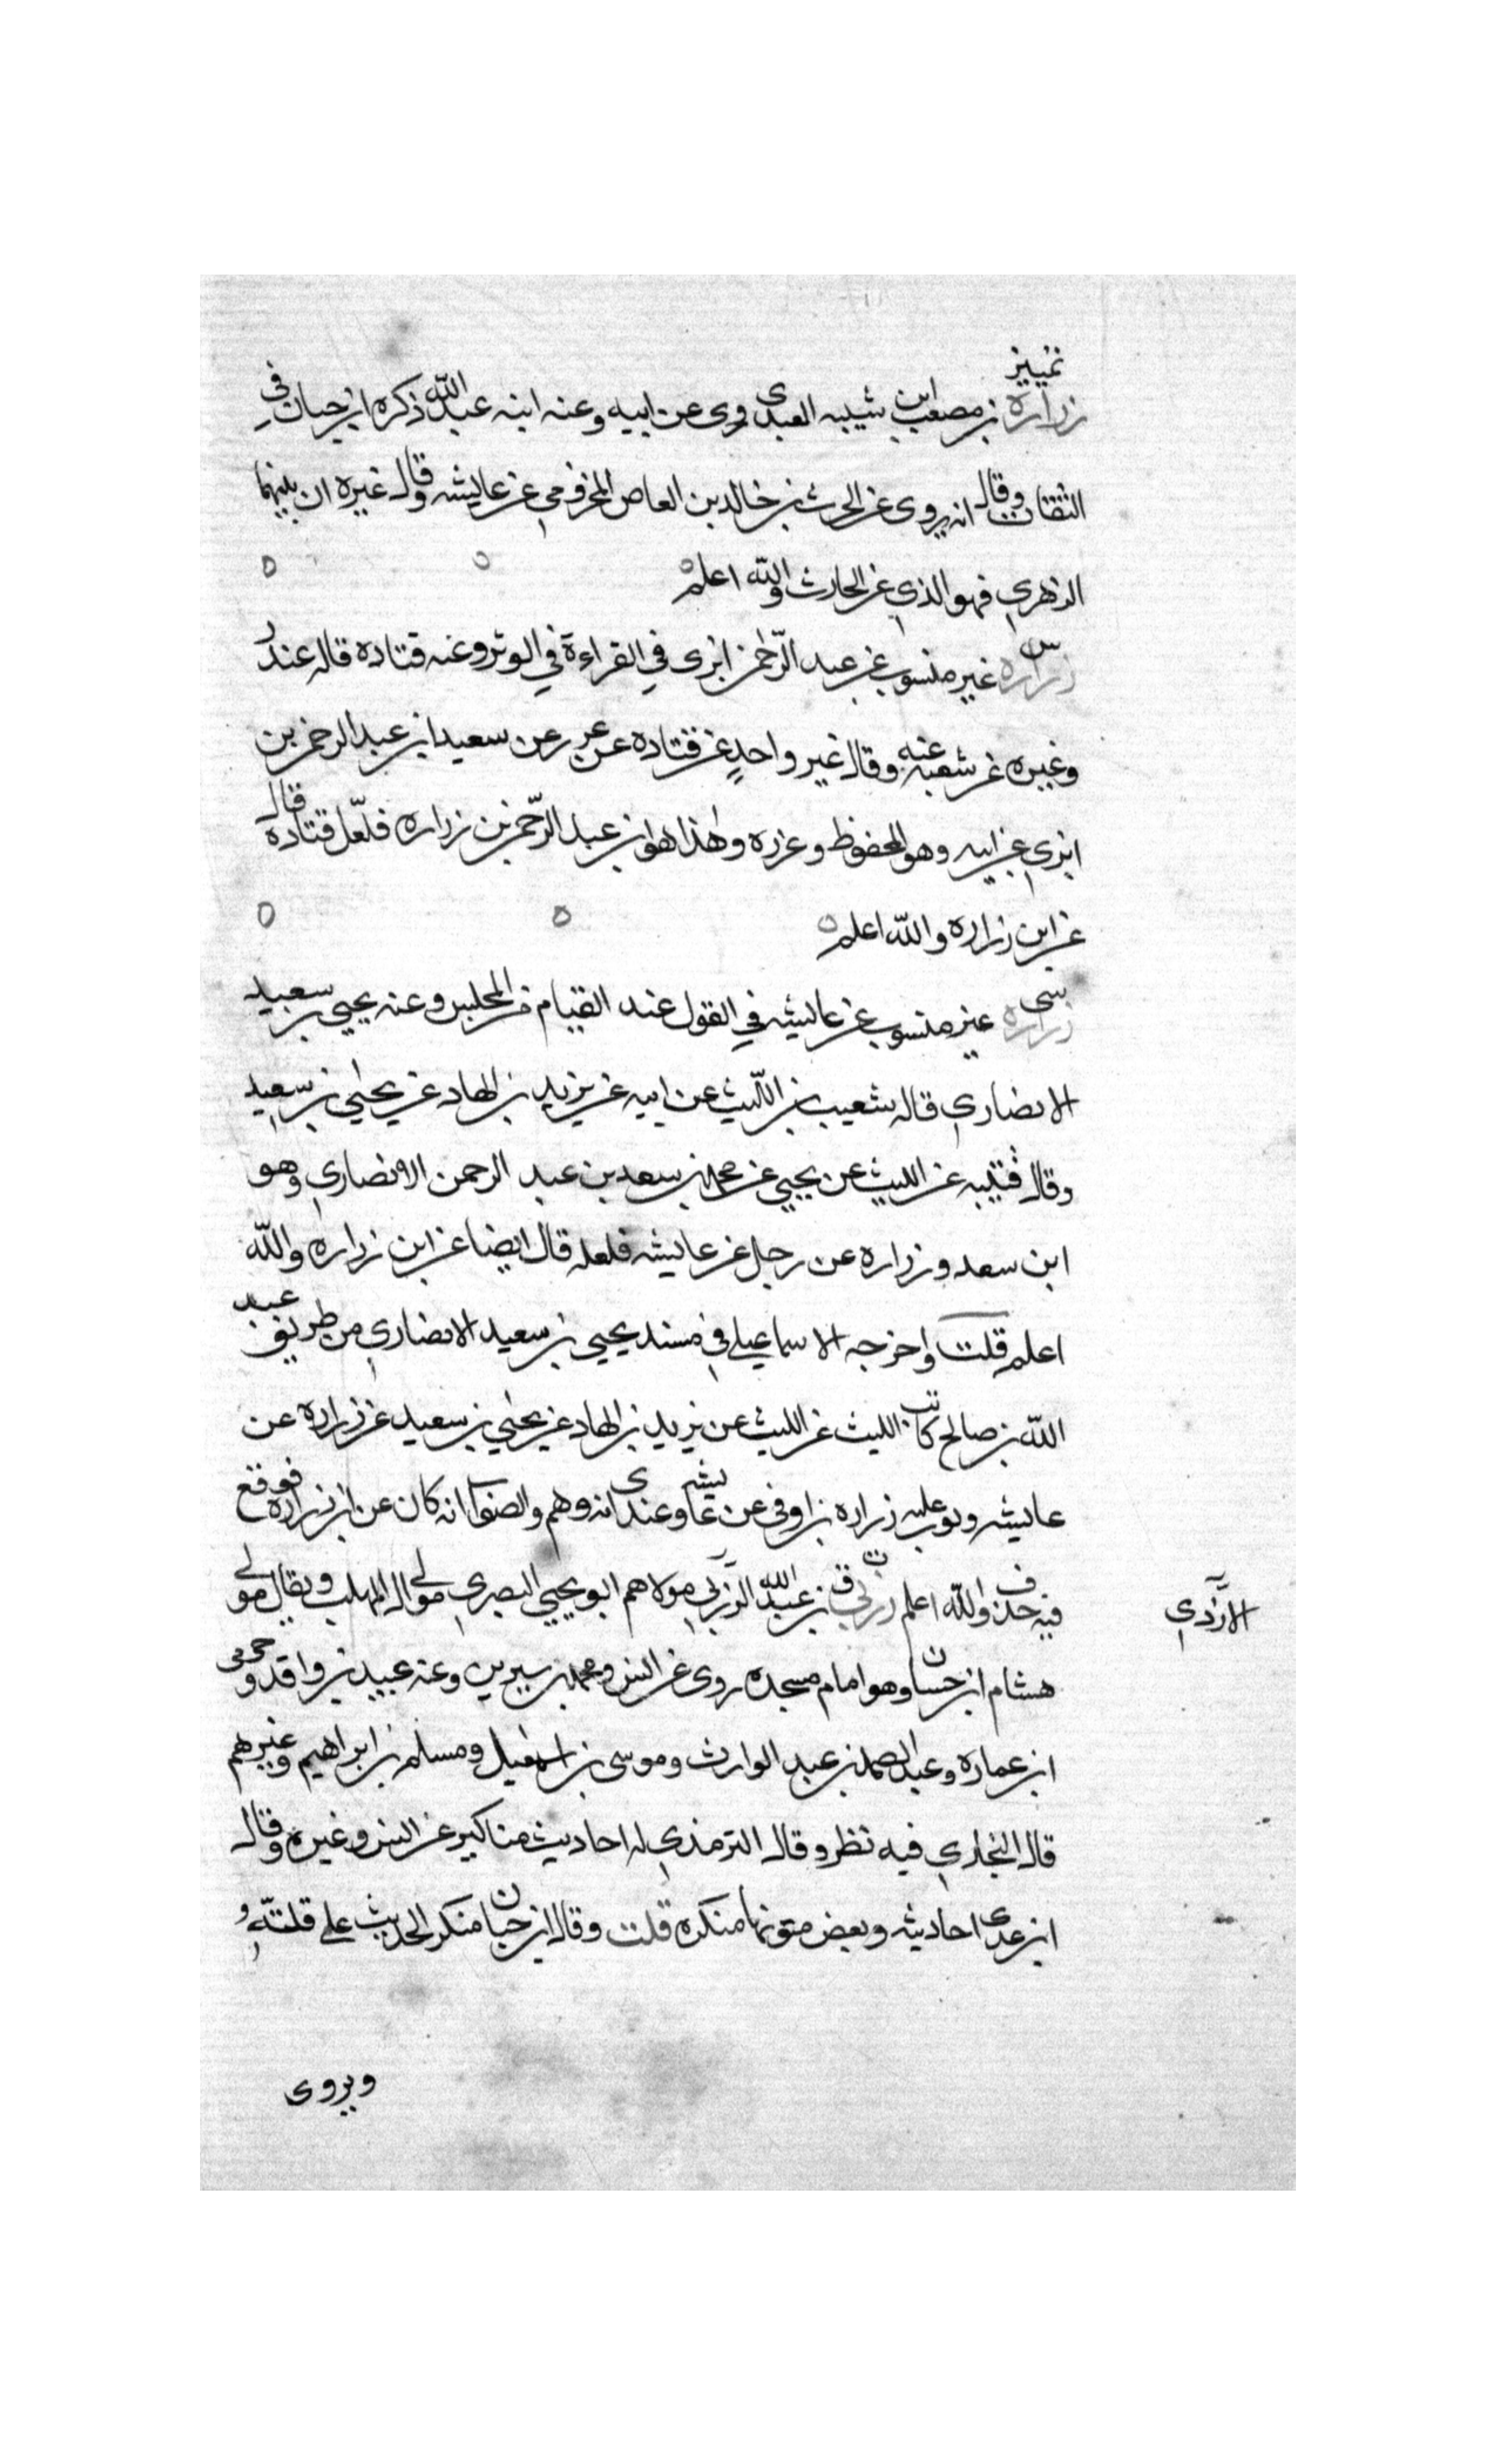 تمييز
زرارة بن مصعب ابن شيبه العبدى روى عن ابيه وعنه ابنه عبد الله ذكره ابن حبان في
الثقات وقال انه يروى عن الحرث بن خالد بن العاص المخزومي عن عايشه وقال غيره ان بينهما
الزهري فهو الذي عن الحارث والله اعلم
س
زراره غير منسوب عن عبد الرحمن ابزى في القراءة في الوتر وعنه قتاده قاله غندر
وغيره عن شعبه عنه وقال غير واحدٍ عن قتاده عن عزره عن سعيد ابن عبد الرحمن بن
ابزي عن ابيه وهو المحفوظ وعزره وهذا هو ابن عبد الرحمن بن زراره فلعّل قتاده قال
عن ابن زراره والله اعلم
سى
زراره غير منسوب عن عايشه في القول عند القيام من المجلس وعنه يحيى بن سعيد
الانصاري قاله شعيب بن اللّيث عن ابيه عن يزيد بن الهاد عن يحيى بن سعيد
وقال قتيبه عن الليث عن يحيي عن محمد بن سعد بن عبد الرحمن الانصاري وهو
ابن سعد وزراره عن رجل عن عايشه فلعله قال ايضا عن ابن زراره والله
اعلم قلت واخرجه الاسماعيلي في مسند يحيى بن سعيد الانصاري من طريق عبد
الله بن صالح كاتب الليث عن الليث عن يزيد بن الهاد عن يحيى بن سعيد عن زراره عن
عايشه وبوب عليه زراره بن اوفى عن عايشه وعندى انه وهم والصواب انه كان عن ابن زراره فوقع
فيه حذف والله اعلم ت ق زربي بن عبد الله الزربي مولاهم ابو يحيي البصري مولى ال المهلب ويقال مولى
الازدي
هشام ابن حسان وهو امام مسجده روى عن انس ومحمد بن سيرين وعنه عبيد بن واقد وحرمى
ابن عماره وعبد الصمد بن عبد الوارث وموسى بن اسمعيل ومسلم بن ابراهيم وغيرهم
قال البخاري فيه نظر وقال الترمذي له احاديث مناكير عن انس وغيره وقال
ابن عدى احاديثه وبعض متونها منكره قلت وقال ابن حبان منكر الحديث على قلتّه
ويروى